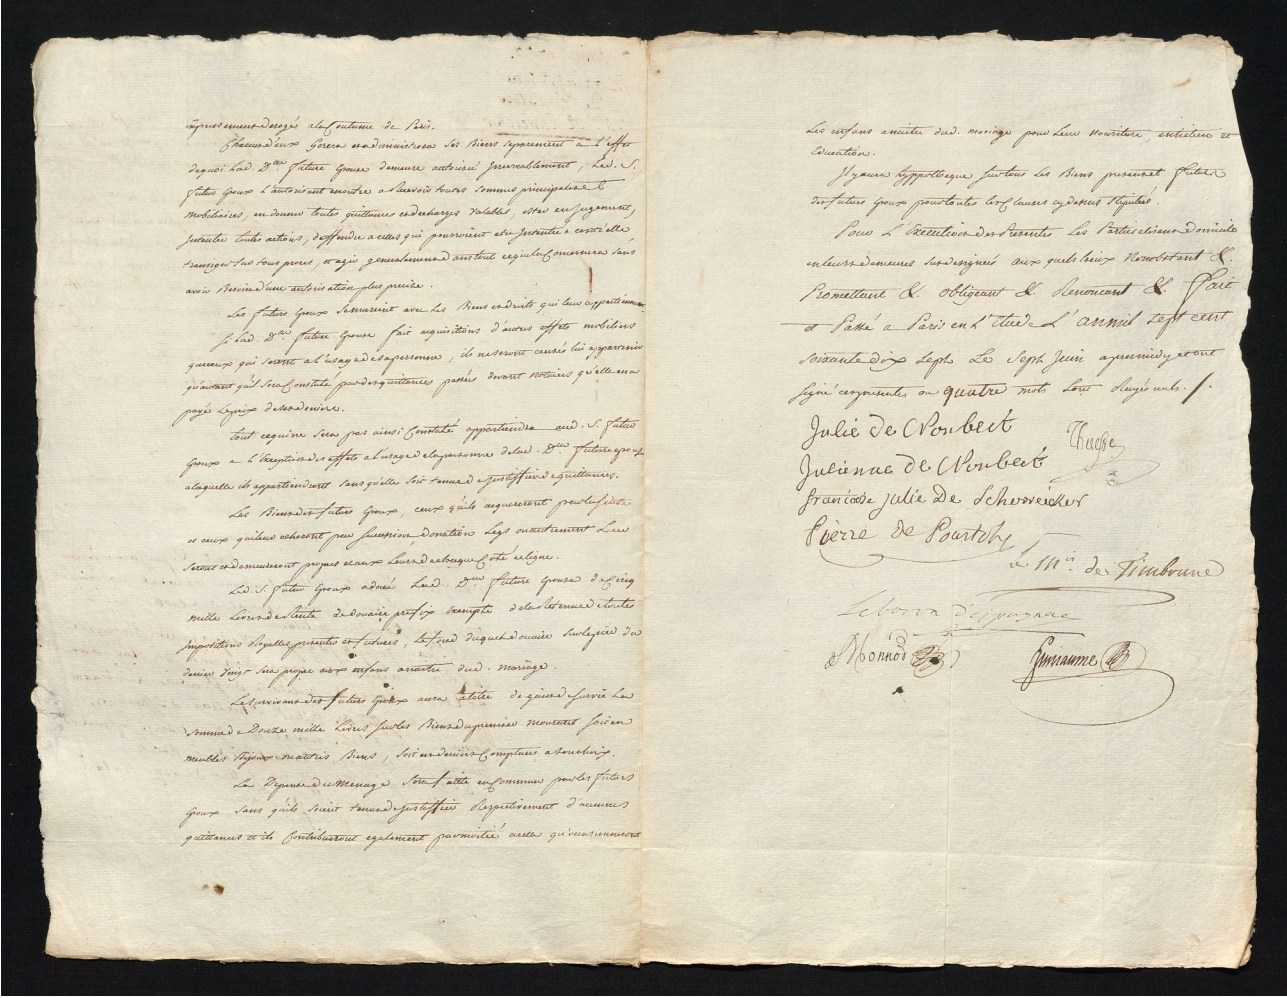 expressement derogé a la Coutume de Paris.
Chacun d'eux Gerera et administrera ses Biens separement a l'effet
de quoi Lad. Dlle future Epouse demeure autorisée irrevocablement, Led. S.
futur Epoux l'autorisant encore a Recevoir toutes sommes principales et
mobiliaires, en donner toutes quittances et decharges Valables, ester en Jugement,
Intenter toutes actions, deffendre a celles qui pourroient etre Intentées contr'elle
transiger sur tous proces, et agir generalement dans tout ce qui la Concernera sans
avoir Besoin d'une autorisation plus precise.
Les futurs Epoux se marient avec les Biens et droits qui leur appartiennent
Si Lad. Dlle future Epouse fait acquisitions d'autres effets mobiliers
que ceux qui seront a l'usage de sa personne, ils ne seront censés lui appartenir
qu'autant qu'il sera Constaté par des quittances passées devant notaires qu'elle en a
payé le prix de ses deniers.
tout ce qui ne sera pas ainsi Constaté appartiendra aud. S. futur
Epoux a l'Exception des effets a l'usage de la personne de lad. Dlle future epouse
a laquelle ils appartiendront sans qu'elle soit tenue de justiffier de quittances.
Les Biens des futurs Epoux, ceux qu'ils acquereront par la suite
et ceux qui leur echeront par succession, donation Legs ou autrement Leur
seront et demeureront propres et aux Leurs de chaque Coté et ligne.
Led. S. futur Epoux a doué Lad. Dlle future Epouse de Cinq
mille Livres de Rente de douaire prefix exempte de la Retenue de toutes
impositions Royalles presentes et futures, le fond duquel douaire sur le pied du
denier vingt sera propre aux enfans a naitre dud. mariage.
Le survivant des futurs Epoux aura a titre de gain de survie La
somme de Douze mille Livres sur les Biens du premier mourant soit en
meubles Bijoux ou autres Biens, soit en deniers Comptans a son choix.
La Depense du Menage sera faite en Commun par les futurs
Epoux sans qu'ils soient tenus de justiffier Respectivement d'aucunes
quittances et ils Contribueront egalement par moitié a celle qu'occasionneront
Les enfans a naitre dud. mariage pour Leur nouriture, entretien et
Education.
Il y aura hyppotheque sur tous les Biens presens et futurs
des futurs Epoux pour toutes les Clauses cy dessus stipulées.
Pour L'Execution des Presentes Les Parties elisent domicile
en leurs demeures sus designées aux quels lieux Nonobstant &.
Promettant &. obligeant & Renoncant &. Fait
et Passé a Paris en l'Etude L'an mil sept cent
soixante dix sept Le Sept Juin apres midy et ont
signé ces presentes ou quatre mots sont Rayés nuls. /.
Julie de Wonbert
Julienne de Wonbert
francoise julie De Schonreicker
Pierre de Pourtch
le Mis. de Timbrune
Lebaron Despagnac
Monnot
Guillaume